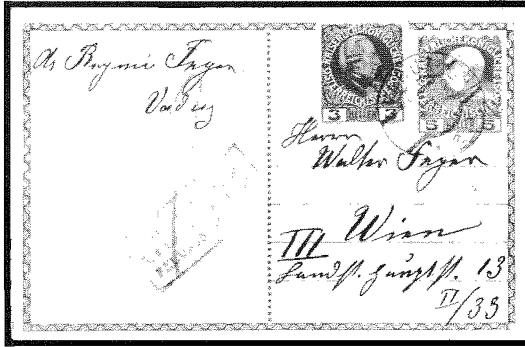 As Regina Feger
Vaduz
3 3
5 5
Herrn
Walter Feger
III Wien
Landst. Hauptst. 13
II/33